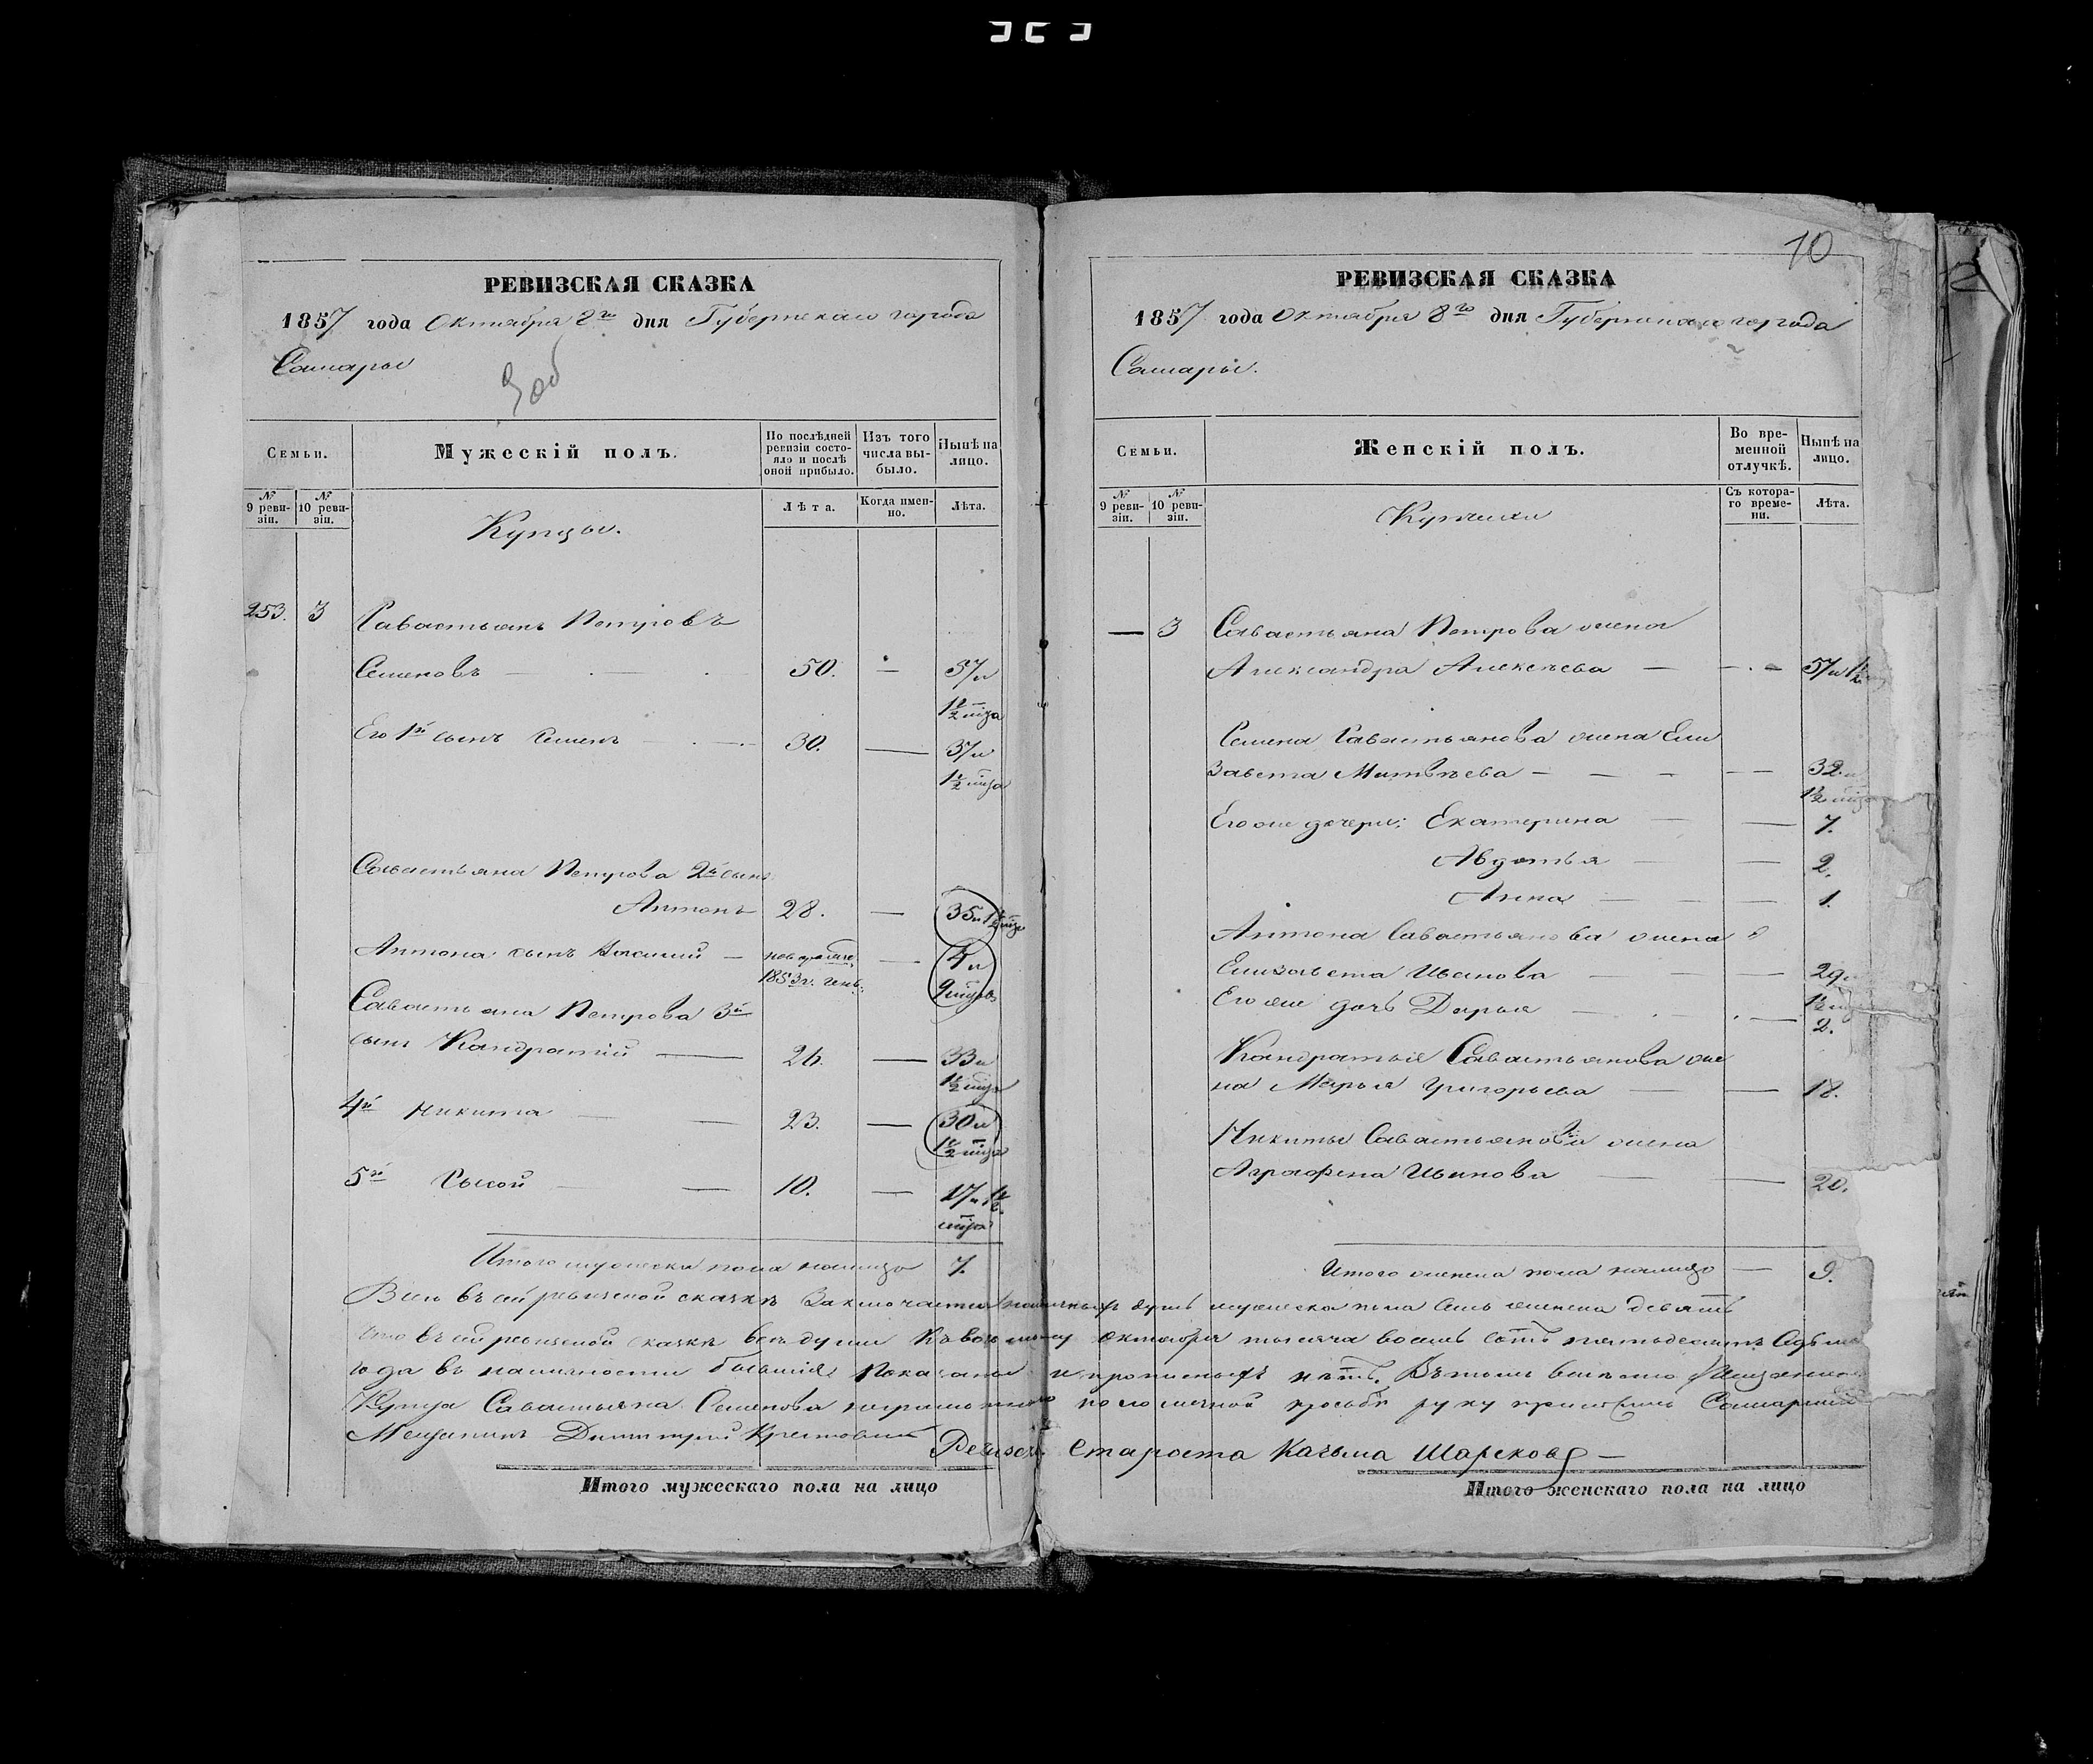 РЕВИЗСКАЯ СКАЗКА
1857 года Октября 8го дня Губернскаго города
Самары
Семьи.
Мужескій полъ.
По послѣдней ревизіи состояло и послѣ оной прибыло.
Изъ того числа выбыло.
Нынѣ на лицо.
№ 9 ревизіи.
№ 10 ревизіи.
Купцы.
Лѣта.
Когда именно.
Лѣта.
253. 3 Савастьянъ Петровъ
Семеновъ — 50. — 57 и
1½ мѣсяца
Его 1й сынъ Семенъ — 30. — 37 и
1½ мѣсяца
Савастьяна Петрова 2й сынъ
Антонъ 28. — 35 и 1½ мѣсяца
Антона сынъ — — 4 и
1853 г. 9 мѣсяцевъ
Савастьяна Петрова 3й
сынъ Кандратій — 26. — 33 и
1½ мѣсяца
4й Никита — 23. — 30 и
1½ мѣсяца
5й Сысой — 10. — 17 и 1½
мѣсяца
Итого мужеска пола налицо 7.
РЕВИЗСКАЯ СКАЗКА
10
1857 года Октября 8го дня Губернскаго города
Самары.
Семьи.
Женскій полъ.
Во временной отлучкѣ.
Нынѣ на лицо.
№ 9 ревизіи.
№ 10 ревизіи.
Купчихи
Съ котораго времени.
Лѣта.
— 3 Савастьяна Петрова жена
Александра Алексѣева — — 57 и 1½
Семена Савастьянова жена Ели
завета Матвѣева — — 32 и
1½ мѣсяца
Его же дочери: Екатерина — — 7.
Авдотья — — 2.
Анна — — 1.
Антона Савастьянова жена
Елизавета Иванова — — 29 и
1½
Его же дочь Дарья — — 2.
Кандратья Савастьянова же
на Марья Григорьева — — 18.
Никиты Савастьянова жена
Аграфена Иванова — — 20.
Итого женска пола налицо — 9.
Всего въ сей ревизской сказкѣ заключается наличныхъ душъ мужеска пола семь женска девять
Что въ сей ревизской сказкѣ всѣ души къ восьмому Октября тысяча восемь сотъ пятьдесятъ седьма
года въ наличности бывшія показаны и прописныхъ нѣтъ. Въ томъ вмѣсто
Купца Савастьяна Семенова неграмотнаго по его личной прозьбѣ руку приложилъ Самарскій
Мещанинъ Димитрій
Староста Казьма Шарсковъ —
Итого мужескаго пола на лицо
Итого женскаго пола на лицо